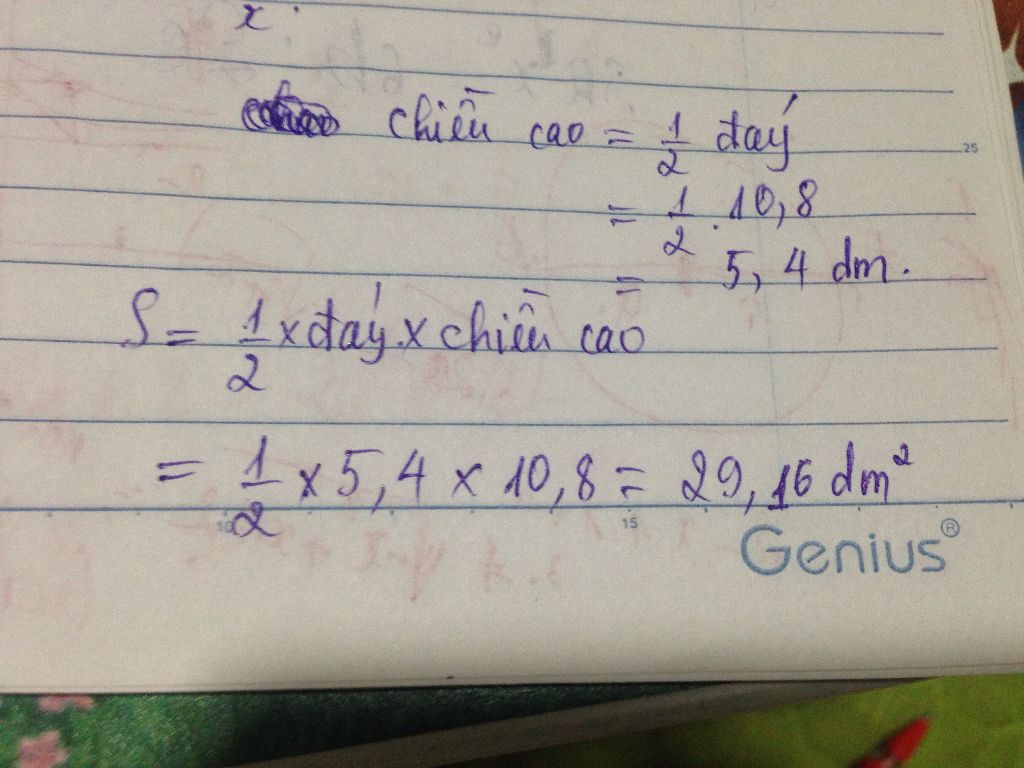 x.
chiều cao = 1/2 đáy
25
= 1/2 . 10,8
= 5,4 dm.
S = 1/2 x đáy x chiều cao
= 1/2 x 5,4 x 10,8 = 29,16 dm²
10 15
Genius®